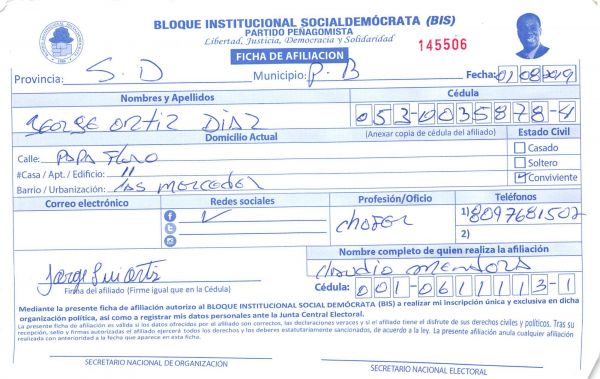 BLOQUE INSTITUCIONAL SOCIALDEMÓCRATA (BIS)
PARTIDO PEÑAGOMISTA
Libertad, Justicia, Democracia y Solidaridad
FICHA DE AFILIACION
145506
Provincia: S. D Municipio: P. B Fecha: 01/08/2019
Nombres y Apellidos
Cédula
George Ortiz Diaz
053-0035878-4
Domicilio Actual
(Anexar copia de cédula del afiliado)
Estado Civil
Calle: PAPA Floro
Casado
#Casa / Apt. / Edificio: 11
Soltero
Barrio / Urbanización: Las Mercedes
Conviviente
Correo electrónico
Redes sociales
Profesión/Oficio
Teléfonos
Chofer
1) 8097681507
2)
Nombre completo de quien realiza la afiliación
Claudio Mendoza
Jorge Luis Ortiz
Firma del afiliado (Firme igual que en la Cédula)
Cédula: 001-0611113-1
Mediante la presente ficha de afiliación autorizo al BLOQUE INSTITUCIONAL SOCIAL DEMÓCRATA (BIS) a realizar mi inscripción única y exclusiva en dicha
organización política, así como a registrar mis datos personales ante la Junta Central Electoral.
La presente ficha de afiliación es válida si los datos ofrecidos por el afiliado son correctos, las declaraciones veraces y si el afiliado tiene el disfrute de sus derechos civiles y políticos. Tras su
recepción, sello y firmas autorizadas el afiliado ejercerá todos los derechos y los deberes estatutariamente sancionados, de acuerdo a la ley. La presente afiliación anula cualquier afiliación
realizada con anterioridad a la fecha que aparece en esta ficha.
SECRETARIO NACIONAL DE ORGANIZACIÓN
SECRETARIO NACIONAL ELECTORAL